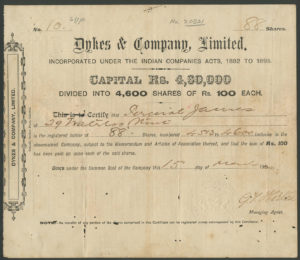 No. 10.
No. 20321
88 Shares.
Dykes & Company, Limited.
INCORPORATED UNDER THE INDIAN COMPANIES ACTS, 1882 TO 1895.
CAPITAL Rs. 4,60,000
DIVIDED INTO 4,600 SHARES OF Rs 100 EACH.
This is to Certify James
is the registered holder of 88 Shares, numbered inclusive in the
abovenamed Company, subject to the Memorandum and Articles of Association thereof, and that the sum of Rs. 100
has been paid up upon each of the said shares.
Given under the Common Seal of the Company this 15 day
Managing Agent.
NOTE.—No transfer of any portion of the Shares comprised in this Certificate can be registered unless accompanied by this Certificate.
DYKES & COMPANY, LIMITED.